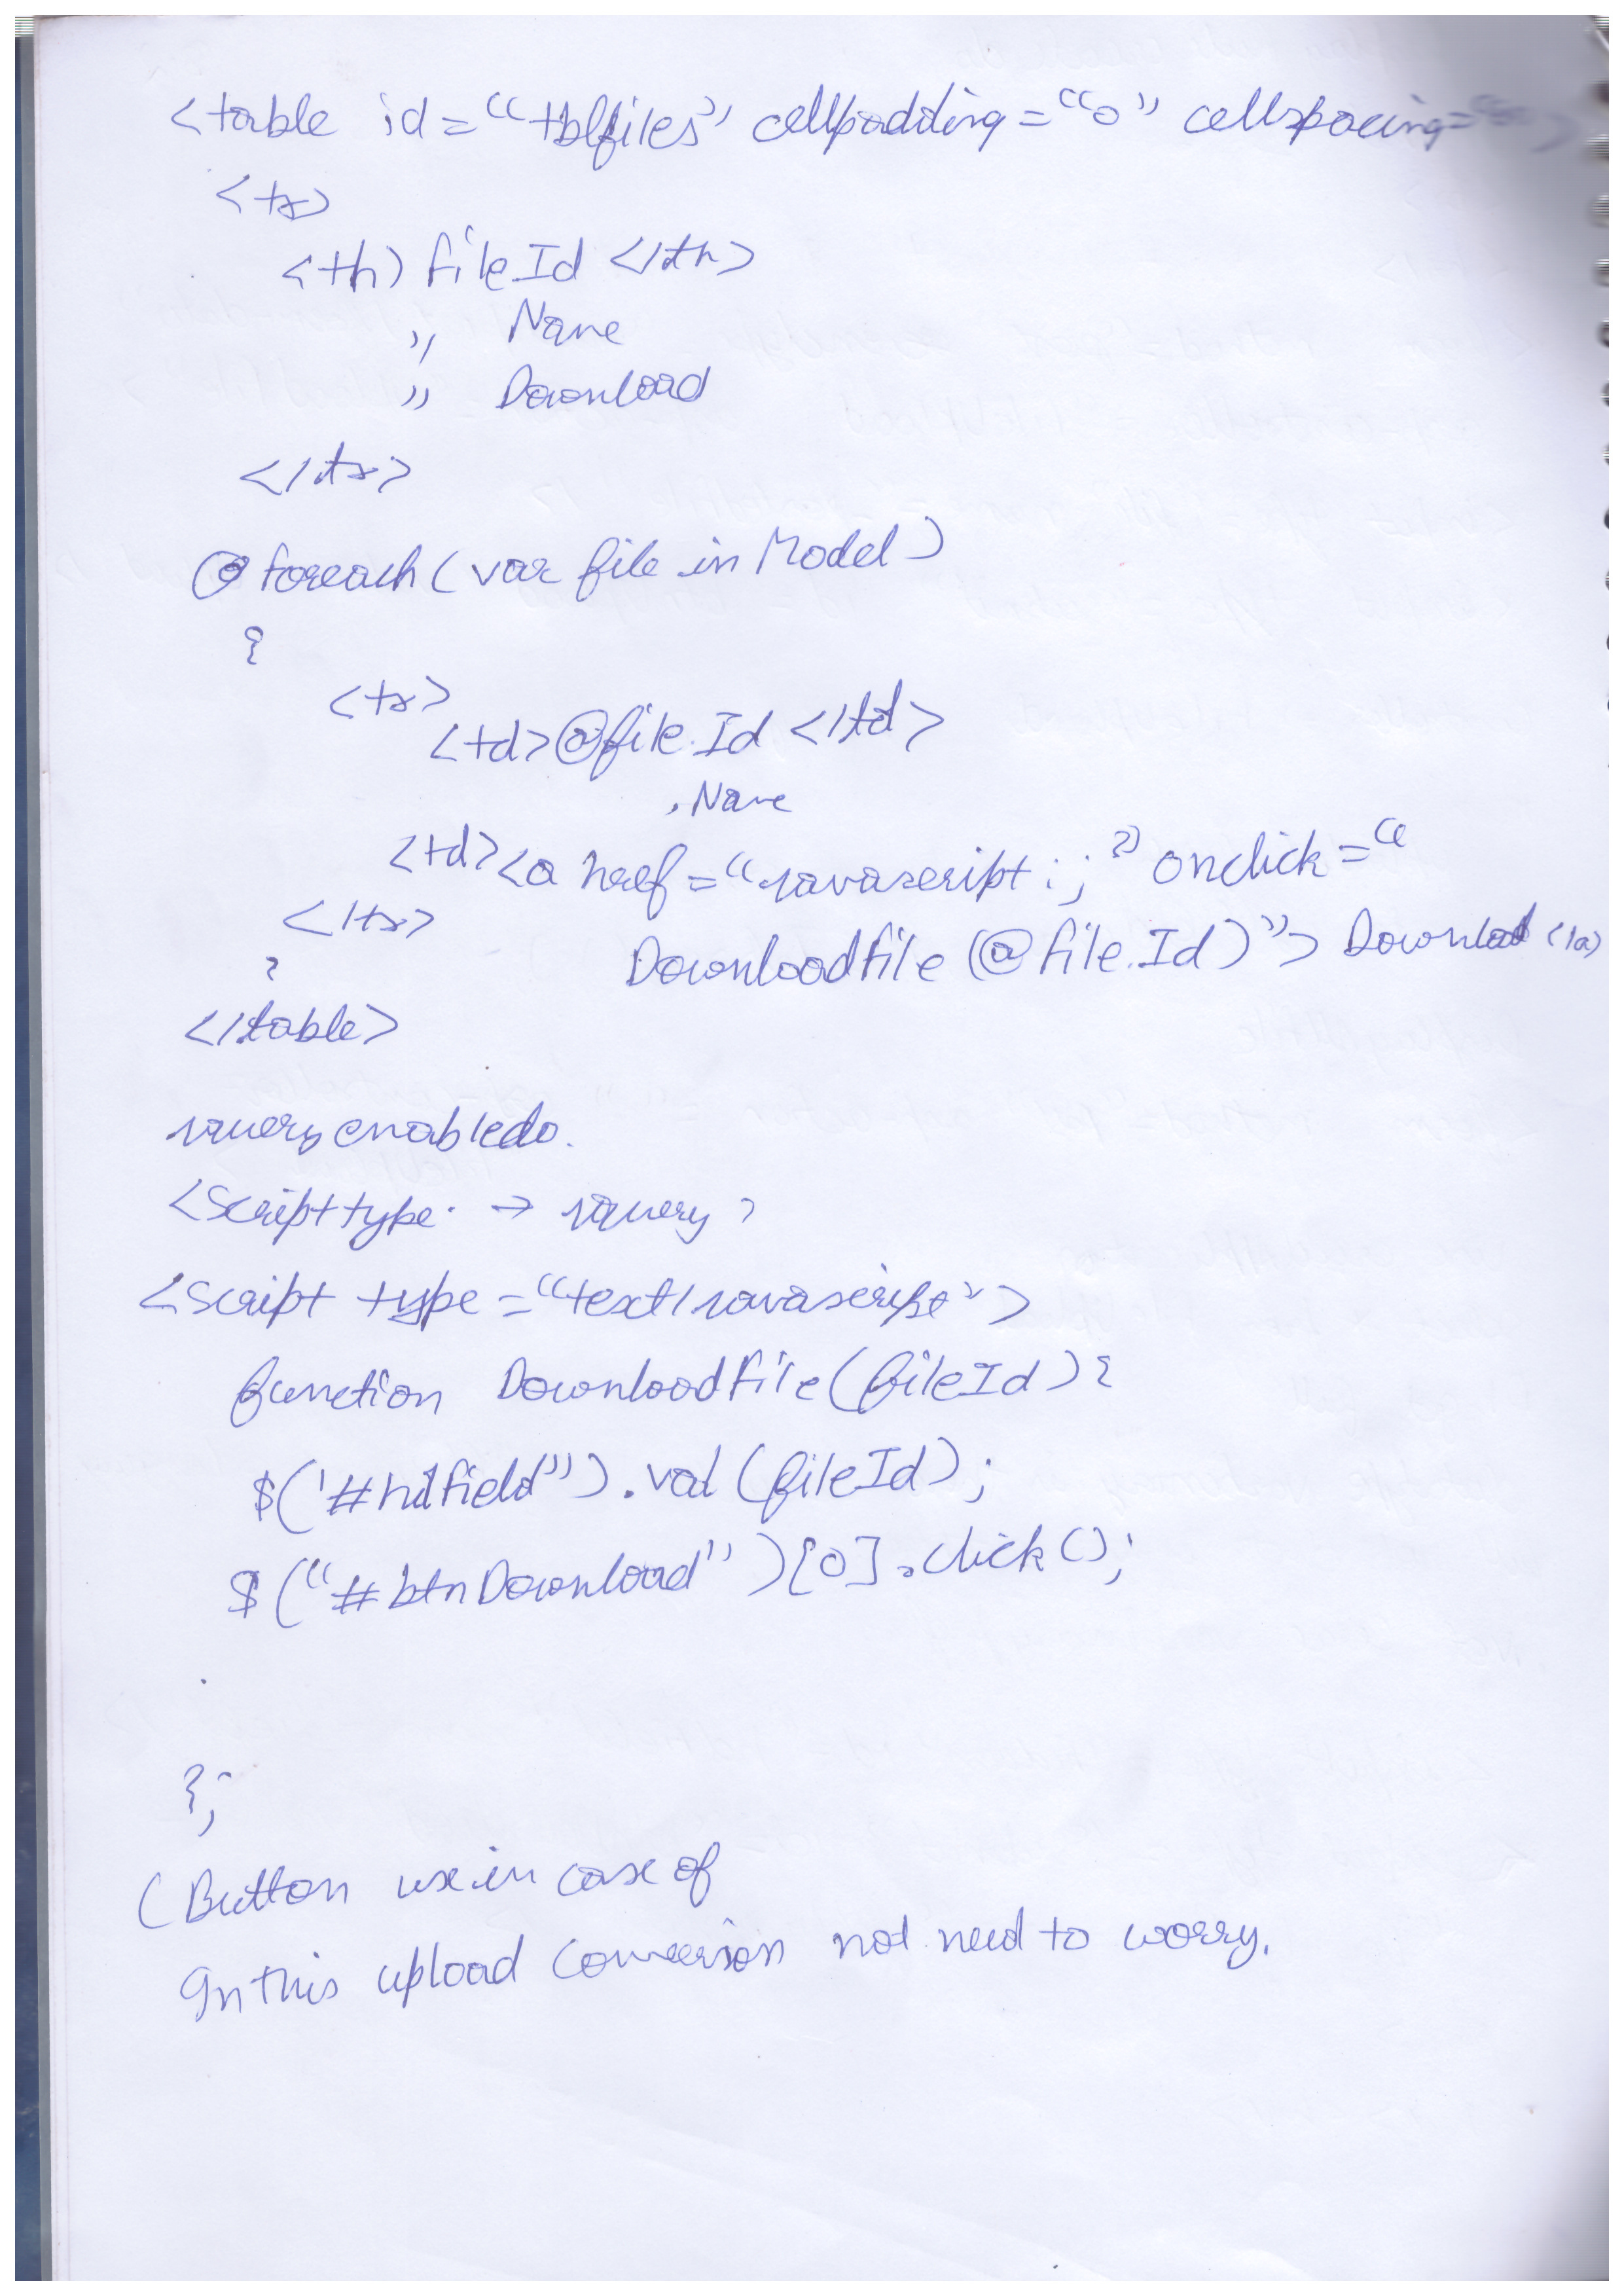 <table id="tblfiles" cellpadding="0" cellspacing=
<tr>
<th> fileId </th>
" Name
" Download
</tr>
@ foreach (var file in Model)
{
<tr>
<td>@file.Id </td>
.Name
<td><a href="javascript:;" onclick="
</tr>
DownloadFile(@file.Id)"> Download </a>
}
</table>
jquery enabledo.
<Script type. → jquery >
<script type="text/javascript">
function DownloadFile(fileId){
$('#hdfield").val(fileId);
$("#btnDownload")[0].click();
};
(Button use in case of
In this upload conversion not need to worry.